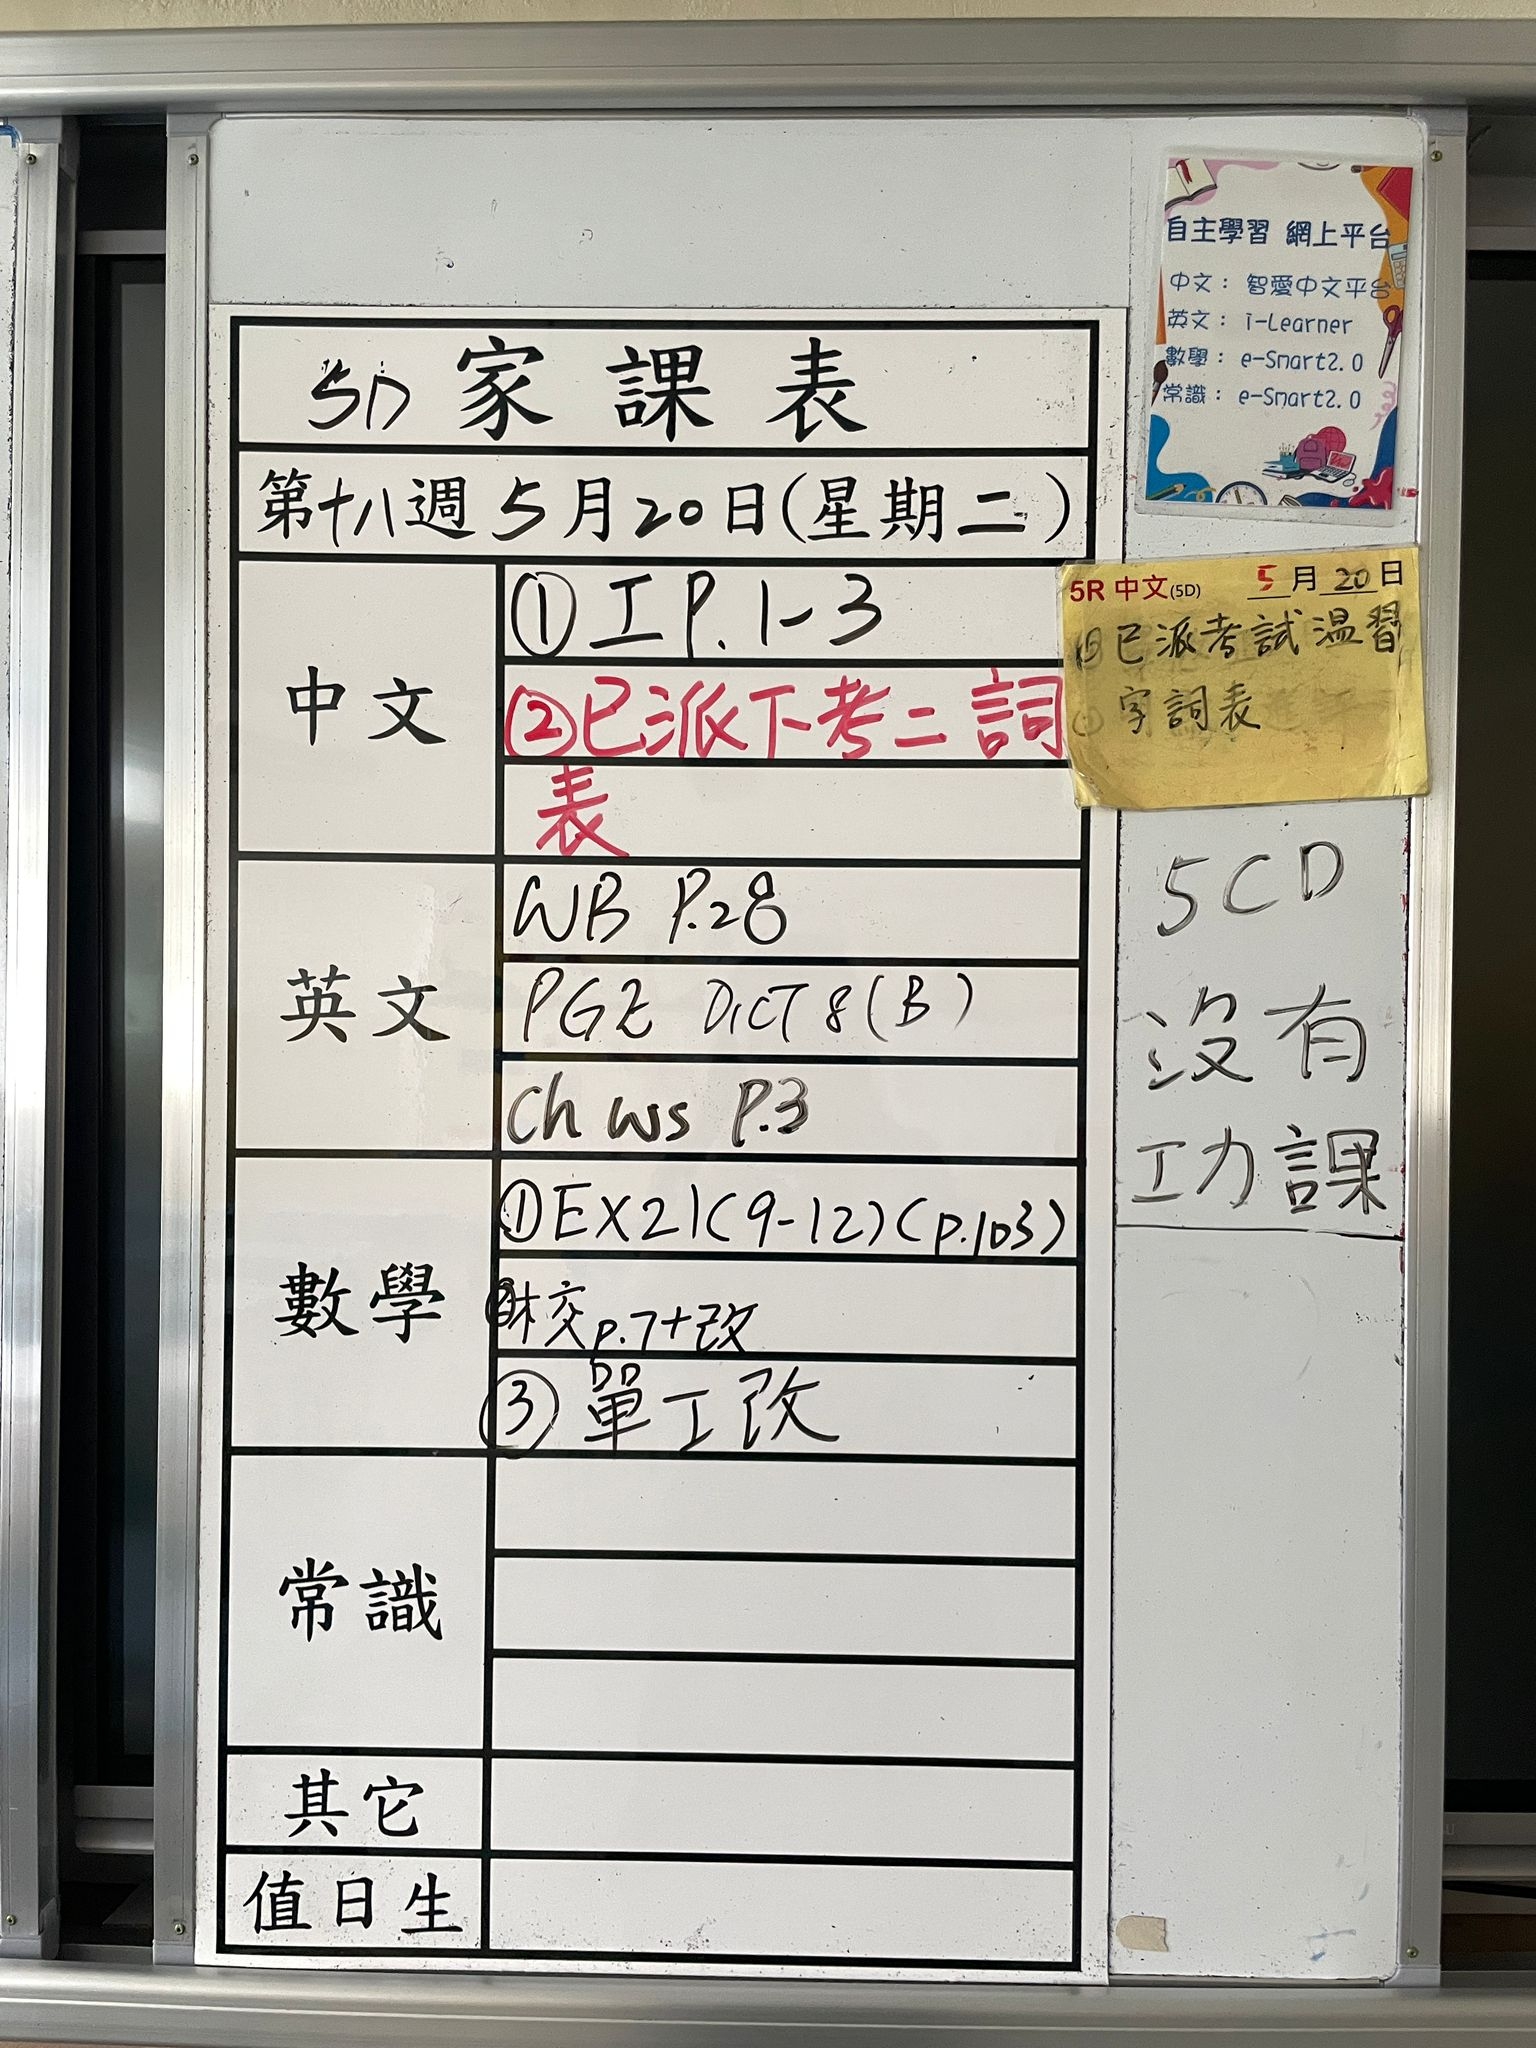 自主學習 網上平台
中文： 智愛中文平台
英文： i-Learner
數學： e-Smart2.0
常識： e-Smart2.0
5D 家課表
第十八週 5月20日(星期二)
中文
①工 P. 1-3
②已派下考二詞
表
5R 中文(5D) 5月20日
已派考試溫習
字詞表
英文
WB P.28
PGE DICT 8(B)
Ch WS P.3
5CD
沒有
功課
數學
①EX21(9-12)(p.103)
②校 p.7+改
③ 單工改
常識
其它
值日生